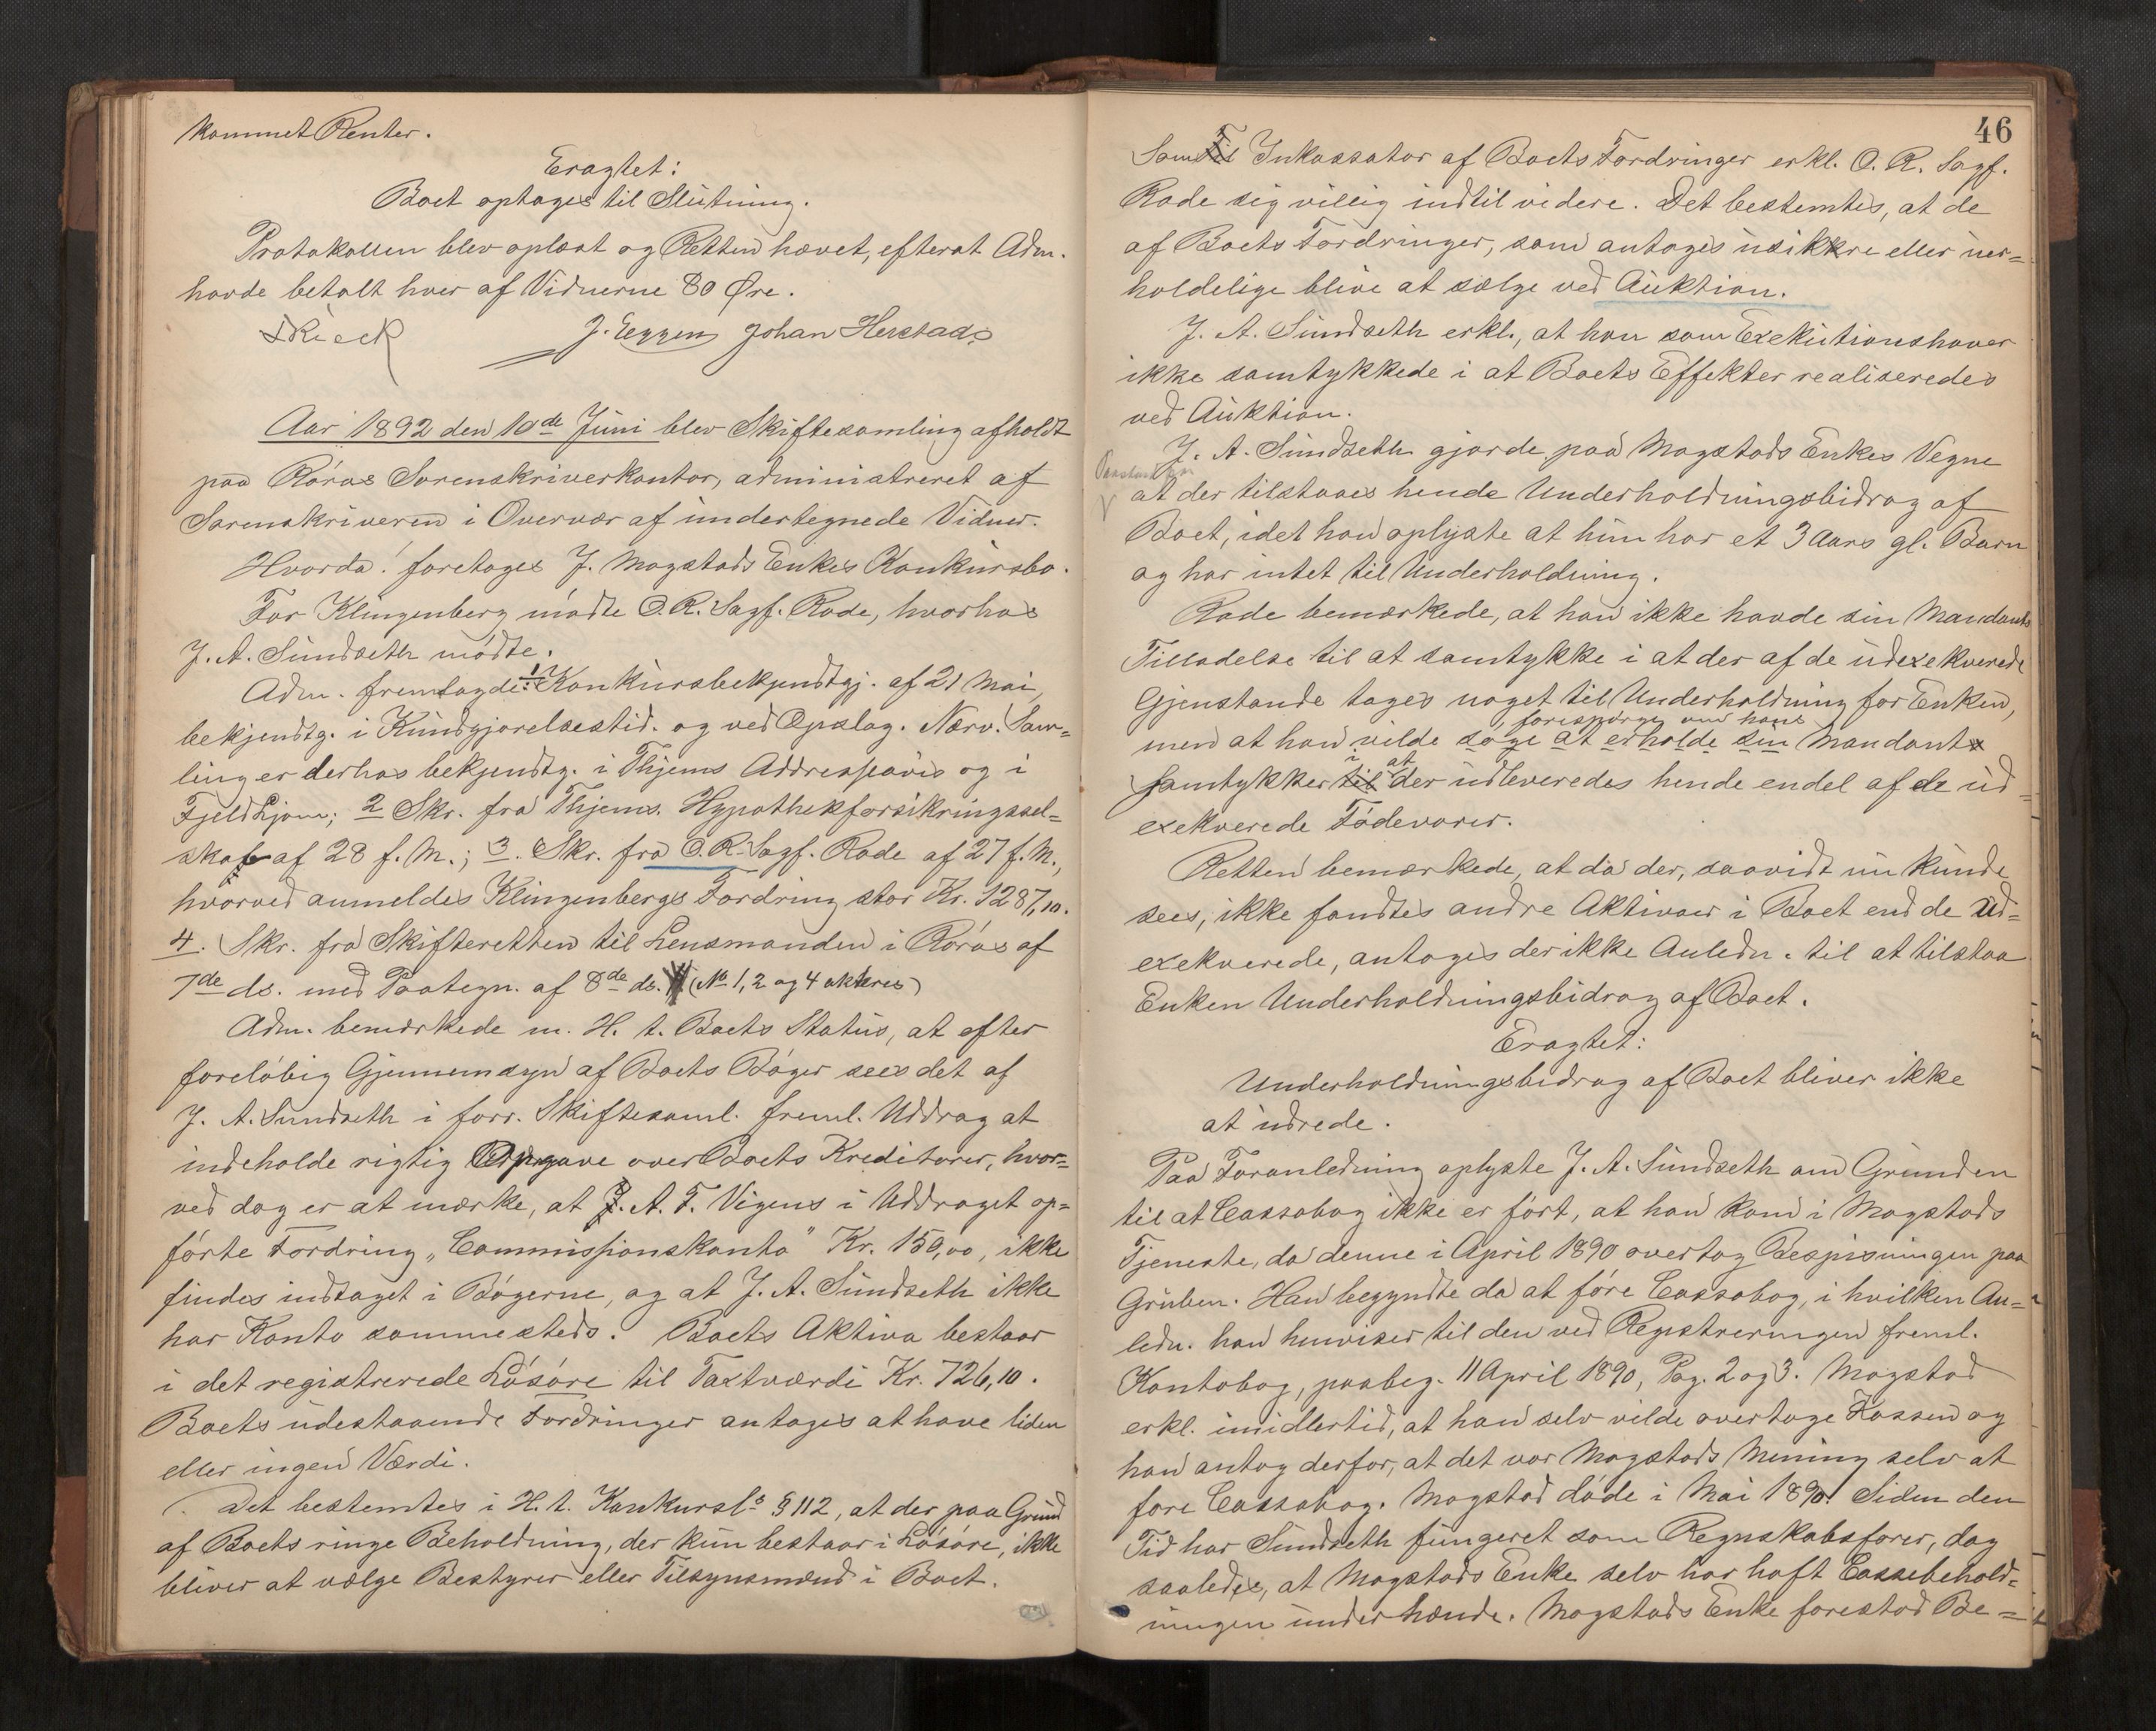 kommet Renter.
Eragtet:
Boet optages til Slutning.
Protokollen blev oplæst og Retten hævet, efterat Adm.
havde betalt hver af Vidnerne 80 Øre.
J. Eggen Johan Herstad
Aar 1892 den 10de Juni blev Skiftesamling afholdt
paa Røros Sorenskriverkontor, administreret af
Sorenskriveren i Overvær af undertegnede Vidner.
Hvorda: foretages J. Magstads Enkes Konkursbo.
For Klingenberg mødte O. R. Sagf. Rode, hvorhos
J. A. Sundseth mødte.
Adm. fremlagde: 1 Konkursbekjendtgj. af 21 Mai,
bekjendtg. i Kundgjørelsestid. og ved Opslag. Nærv. Sam-
ling er derhos bekjendtg. i Thjems Addresseavis og i
Fjeld-Ljom; 2 Skr. fra Thjems. Hypothekforsikringssel-
skab af 28 f. M.; 3. Skr. fra O. R. Sagf. Rode af 27 f. M.,
hvorved anmeldes Klingenbergs Fordring stor Kr. 1287,10.
4. Skr. fra Skifteretten til Lensmanden i Røros af
7de ds. med Paategn. af 8de ds. (No 1, 2 og 4 akteres)
Adm. bemærkede m. H. t. Boets Status, at efter
foreløbig Gjennemsyn af Boets Bøger sees det af
J. A. Sundseth i forr. Skiftesaml. freml. Uddrag at
indeholde rigtig Opgave over Boets Kreditorer, hvor-
ved dog er at mærke, at J. A. F. Vigens i Uddraget op-
førte Fordring „Commissionskonto" Kr. 150,00, ikke
findes indtaget i Bøgerne, og at J. A. Sundseth ikke
har Konto sammesteds. Boets Aktiva bestaar
i det registrerede Løsøre til Taxtværdi Kr. 726,10.
Boets udestaaende Fordringer antages at have liden
eller ingen Værdi.
Det bestemtes i H. t. Konkursls § 112, at der paa Grund
af Boets ringe Beholdning, der kun bestaar i Løsøre, ikke
bliver at vælge Bestyrer eller Tilsynsmænd i Boet.
46
Som Til Inkassator af Boets Fordringer erkl. O. R. Sagf.
Rode sig villig indtil videre. Det bestemtes, at de
af Boets Fordringer, som antages usikkre eller uer-
holdelige blive at sælge ved Auktion.
J. A. Sundseth erkl., at han som Exekutionshaver
ikke samtykkede i at Boets Effekter realiseredes
ved Auktion.
J. A. Sundseth gjorde paa Magstads Enkes Vegne
Paastand om
at der tilstaaes hende Underholdningsbidrag af
Boet, idet han oplyste at hun har et 3 Aars gl. Barn
og har intet til Underholdning.
Rode bemærkede, at han ikke havde sin Mandants
Tilladelse til at samtykke i at der af de udexekverede
Gjenstande tages noget til Underholdning for Enken,
forespørge om hans
men at han vilde søge at erholde sin Mandants
i at
Samtykker til der udleveredes hende endel af de ud-
exekverede Fødevarer.
Retten bemærkede, at da der, saavidt nu kunde
sees, ikke fandtes andre Aktivaer i Boet end de ud-
exekverede, antages der ikke Anledn. til at tilstaa
Enken Underholdningsbidrag af Boet.
Eragtet:
Underholdningsbidrag af Boet bliver ikke
at udrede.
Paa Foranledning oplyste J. A. Sundseth om Grunden
til at Cassabog ikke er ført, at han kom i Magstads
Tjeneste, da denne i April 1890 overtog Bespisningen paa
Gruben. Han begyndte da at føre Cassabog, i hvilken An-
ledn. han henviser til den ved Registreringen freml.
Kontobog, paabeg. 11 April 1890, Pag. 2 og 3. Magstad
erkl. imidlertid, at han selv vilde overtage Kassen og
han antog derfor, at det var Magstads Mening selv at
føre Cassabog. Magstad døde i Mai 1890. Siden den
Tid har Sundseth fungeret som Regnskabsfører, dog
saaledes, at Magstads Enke selv har havt Cassebehold-
ningen under hænde. Magstads Enke forestod Be-